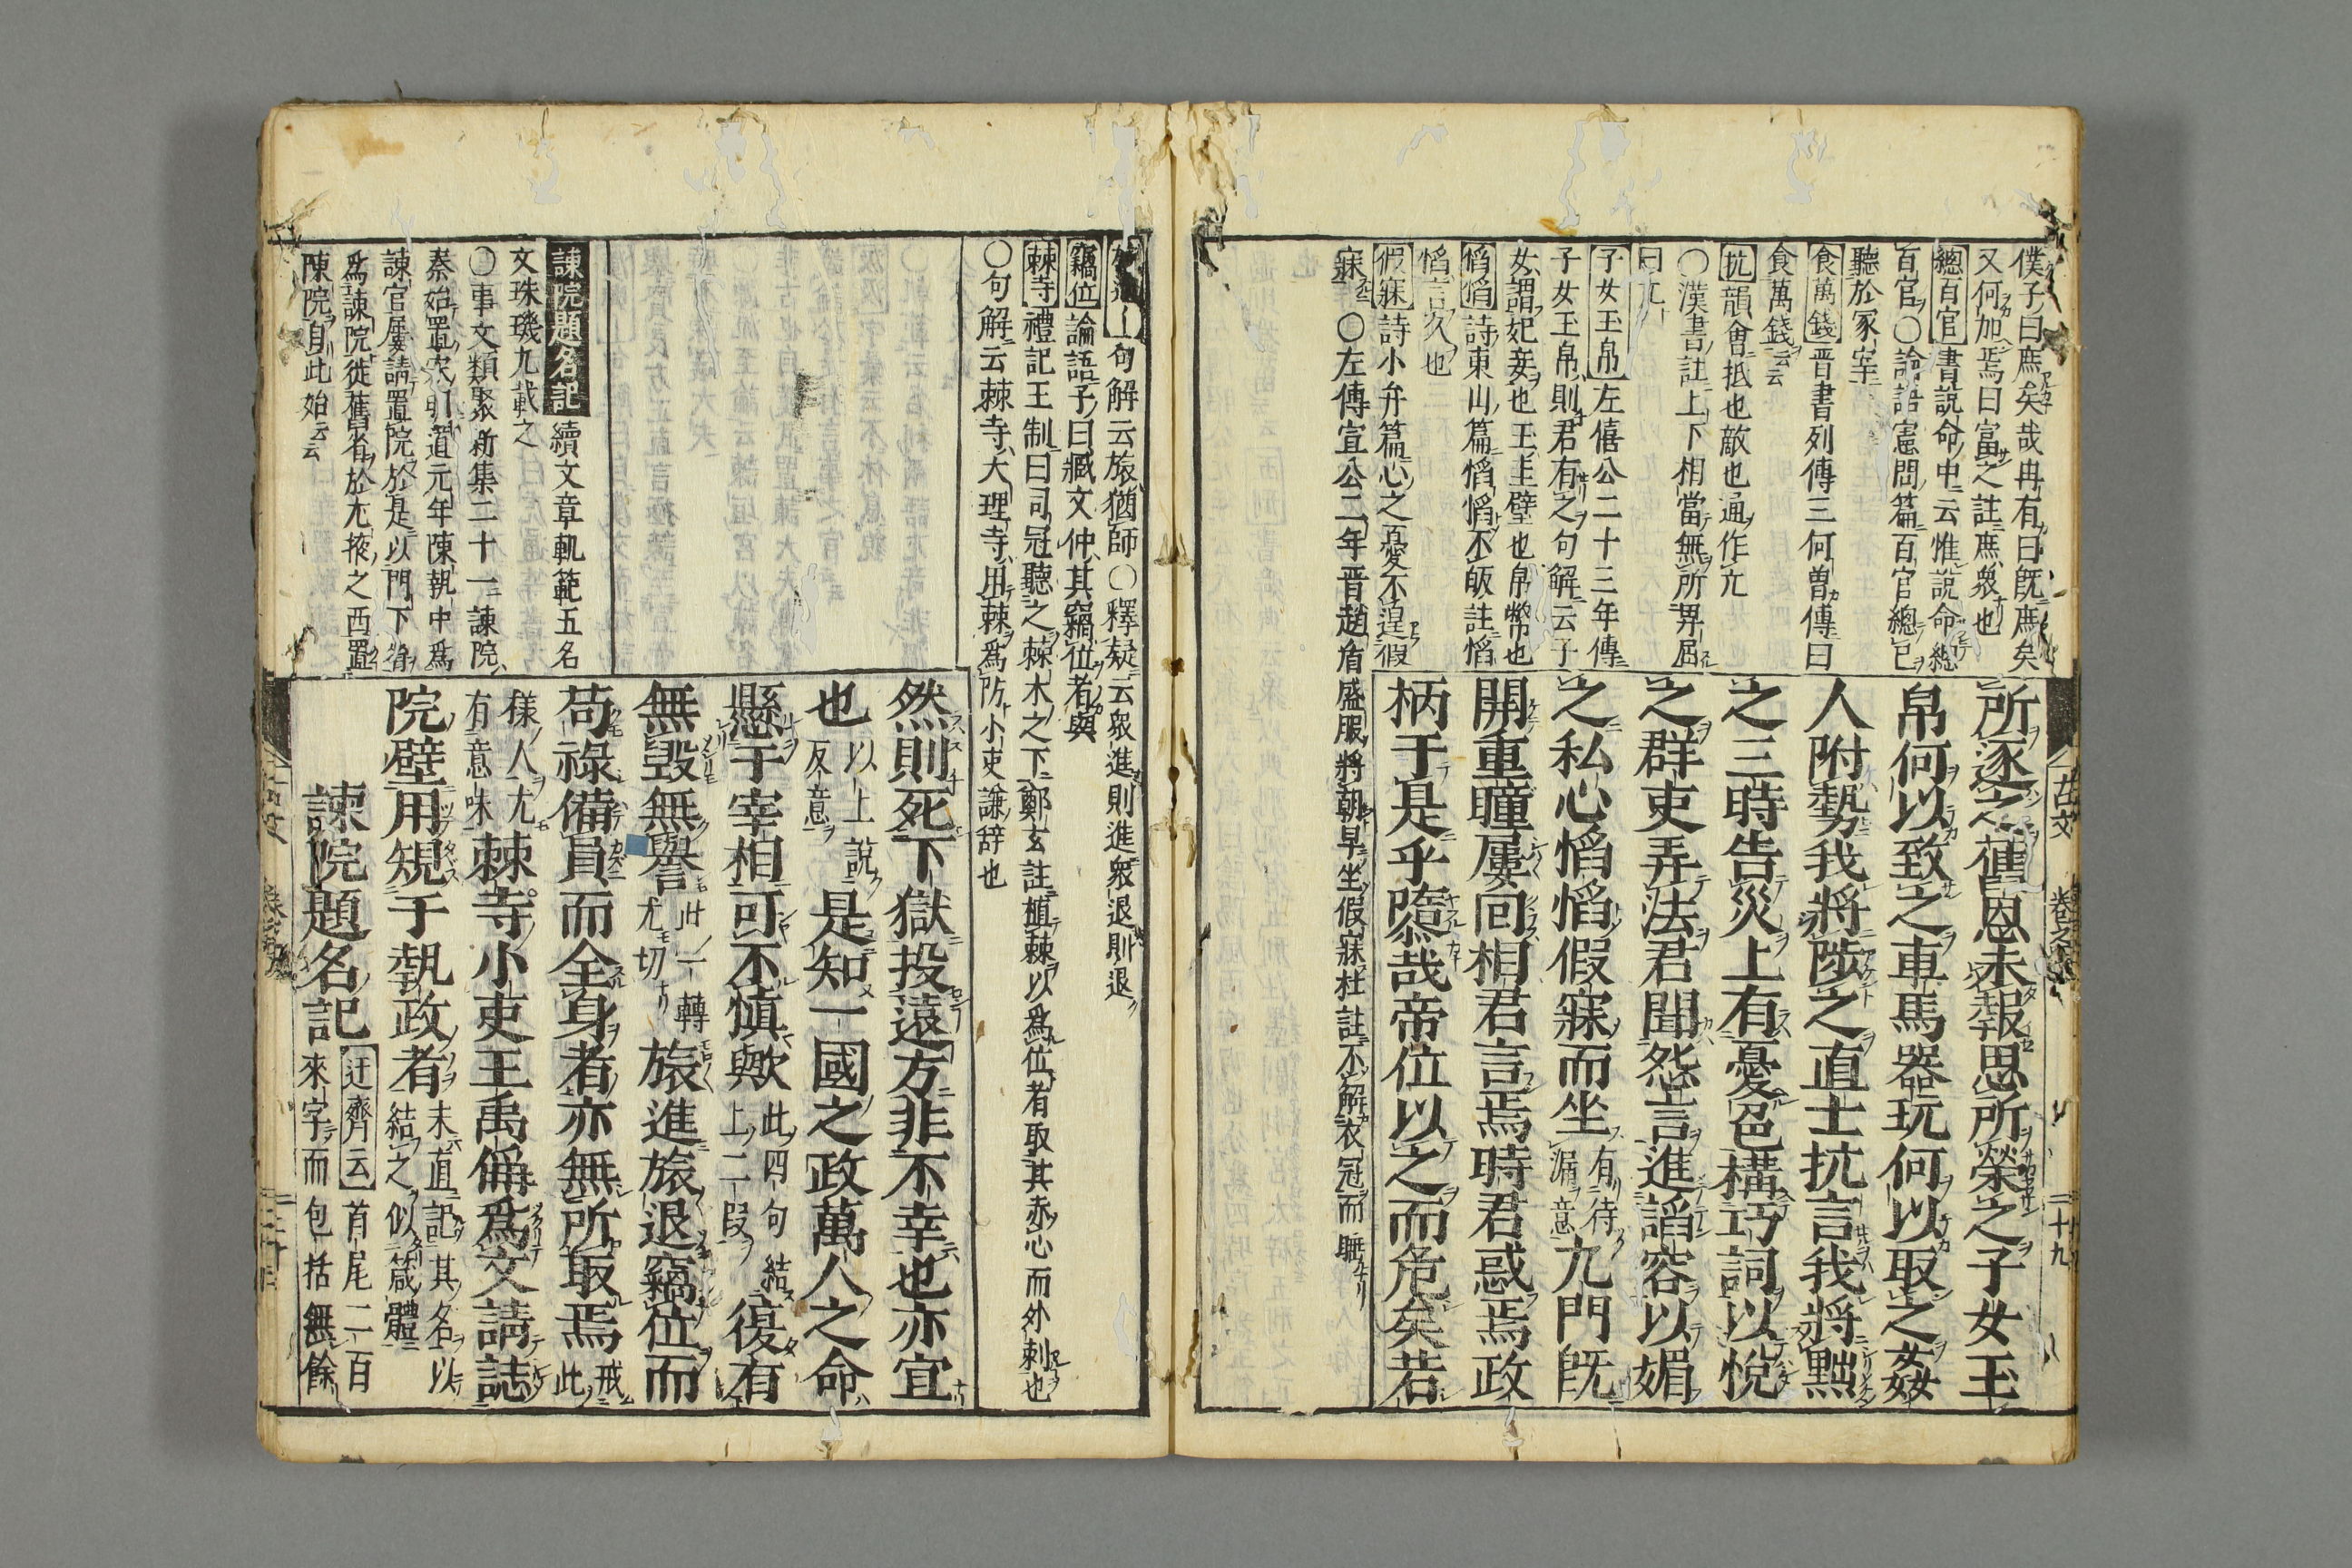 僕子曰庶矣哉冉有曰既庶矣
又何加焉曰富之註庶衆也
總百官書說命中云惟說命總
百官〇論語憲問篇百官總已
聽於冢宰
食萬錢晋書列傳三何曽傳曰
食萬錢云云
抗韻會抵也敵也通作亢
〇漢書註上下相當無所畀屈
曰亢
子女玉帛左僖公二十三年傳
子女玉帛則君有之句解云子
女謂妃妾也玉圭璧也帛幣也
慆慆詩東山篇慆慆不皈註慆
慆言久也
假寐詩小弁篇心之憂不遑假
寐〇左傳宣公二年晋趙盾盛服將朝早坐假寐杜註不解衣冠而睡
所逐之舊恩未報思所榮之子女玉
帛何以致之車馬器玩何以取之姦
人附勢我將陟之直士抗言我將黜
之三時告災上有憂色構巧詞以悅
之群吏弄法君聞怨言進諂容以媚
之私心慆慆假寐而坐有待漏意九門既
開重瞳屢囘相君言焉時君惑焉政
柄于是乎隳哉帝位以之而危矣若
古文 二十九
句解云旅猶師〇釋疑云衆進則進衆退則退
竊位論語子曰臧文仲其竊位者與
棘寺禮記王制曰司冠聽之棘木之下鄭玄註植棘以爲位者取其赤心而外刺也
〇句解云棘寺大理寺用棘爲防小吏謙辞也
諫院題名記續文章軌範五名
文珠璣九載之
〇事文類聚新集二十一諫院
秦始置宋明道元年陳執中爲
諫官屢請置院於是以門下省
爲諫院徙舊省於尢掖之西置
陳院自此始云云
然則死下獄投遠方非不幸也亦宜
也以上說反意是知一國之政萬人之命
懸于宰相可不慎歟此四句結上二段復有
無毀無譽此一轉尤切旅進旅退竊位而
苟祿備員而全身者亦無所取焉戒此
樣人尤有意味棘寺小吏王禹偁爲文請誌
院壁用規于執政者末直記其名以結之似箴體
諫院題名記迂齊云首尾二百來字而包括無餘